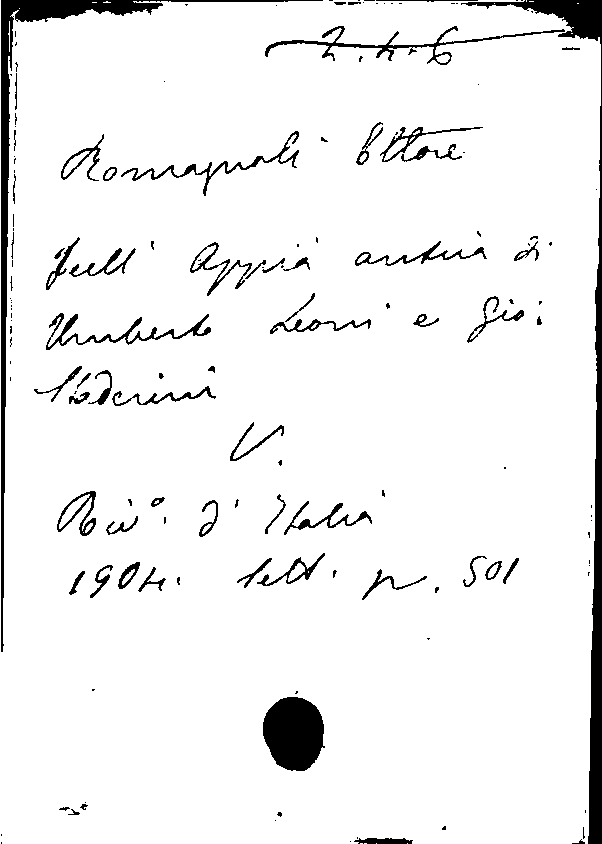 2.4.6
Romagnoli Ettore
Sull' Appia antica di
Umberto Leoni e Gio:
Staderini
V.
Riv°. d' Italia
1904. Sett. p. 501